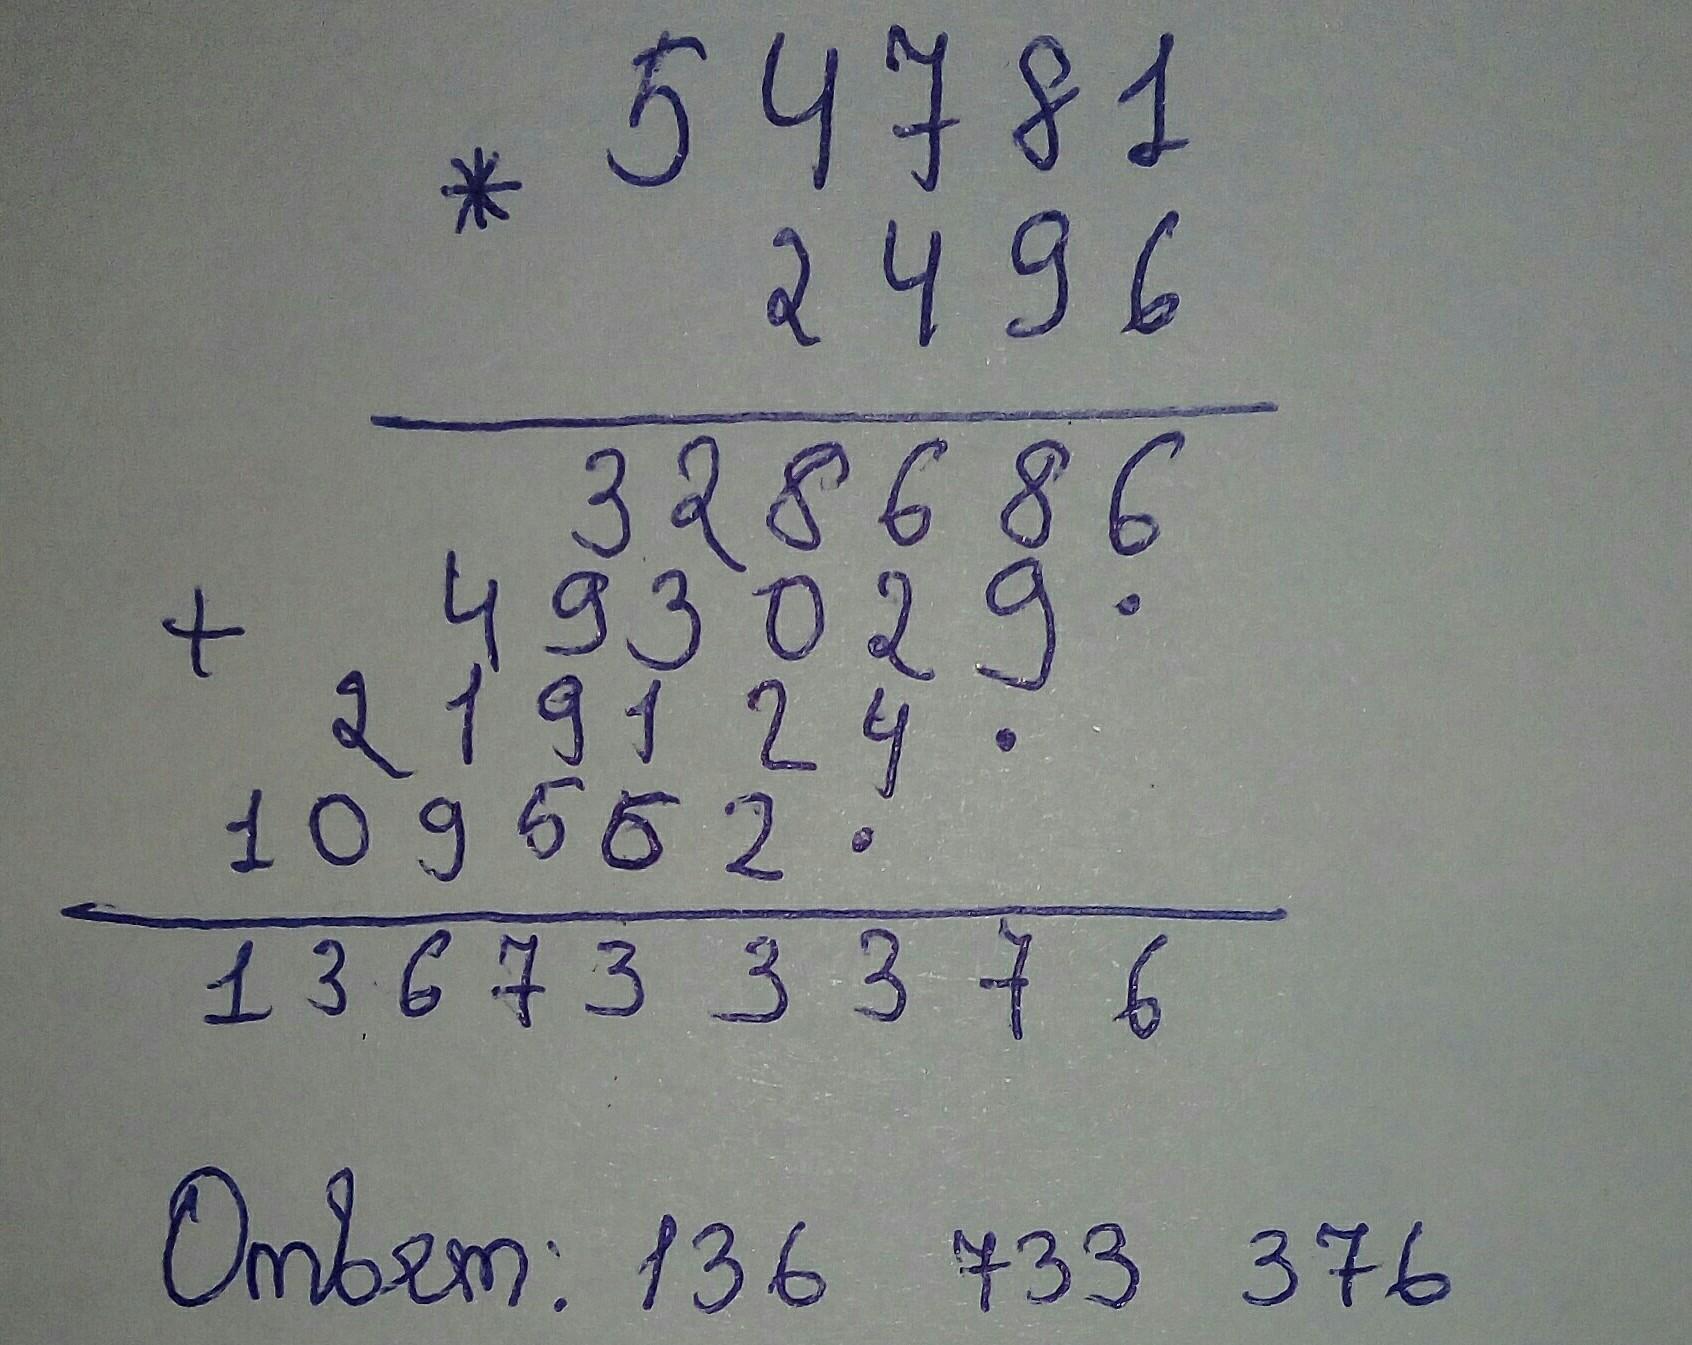 54781
*
2496
328686
+ 493029.
219124.
109562.
136733376
Ответ: 136 733 376